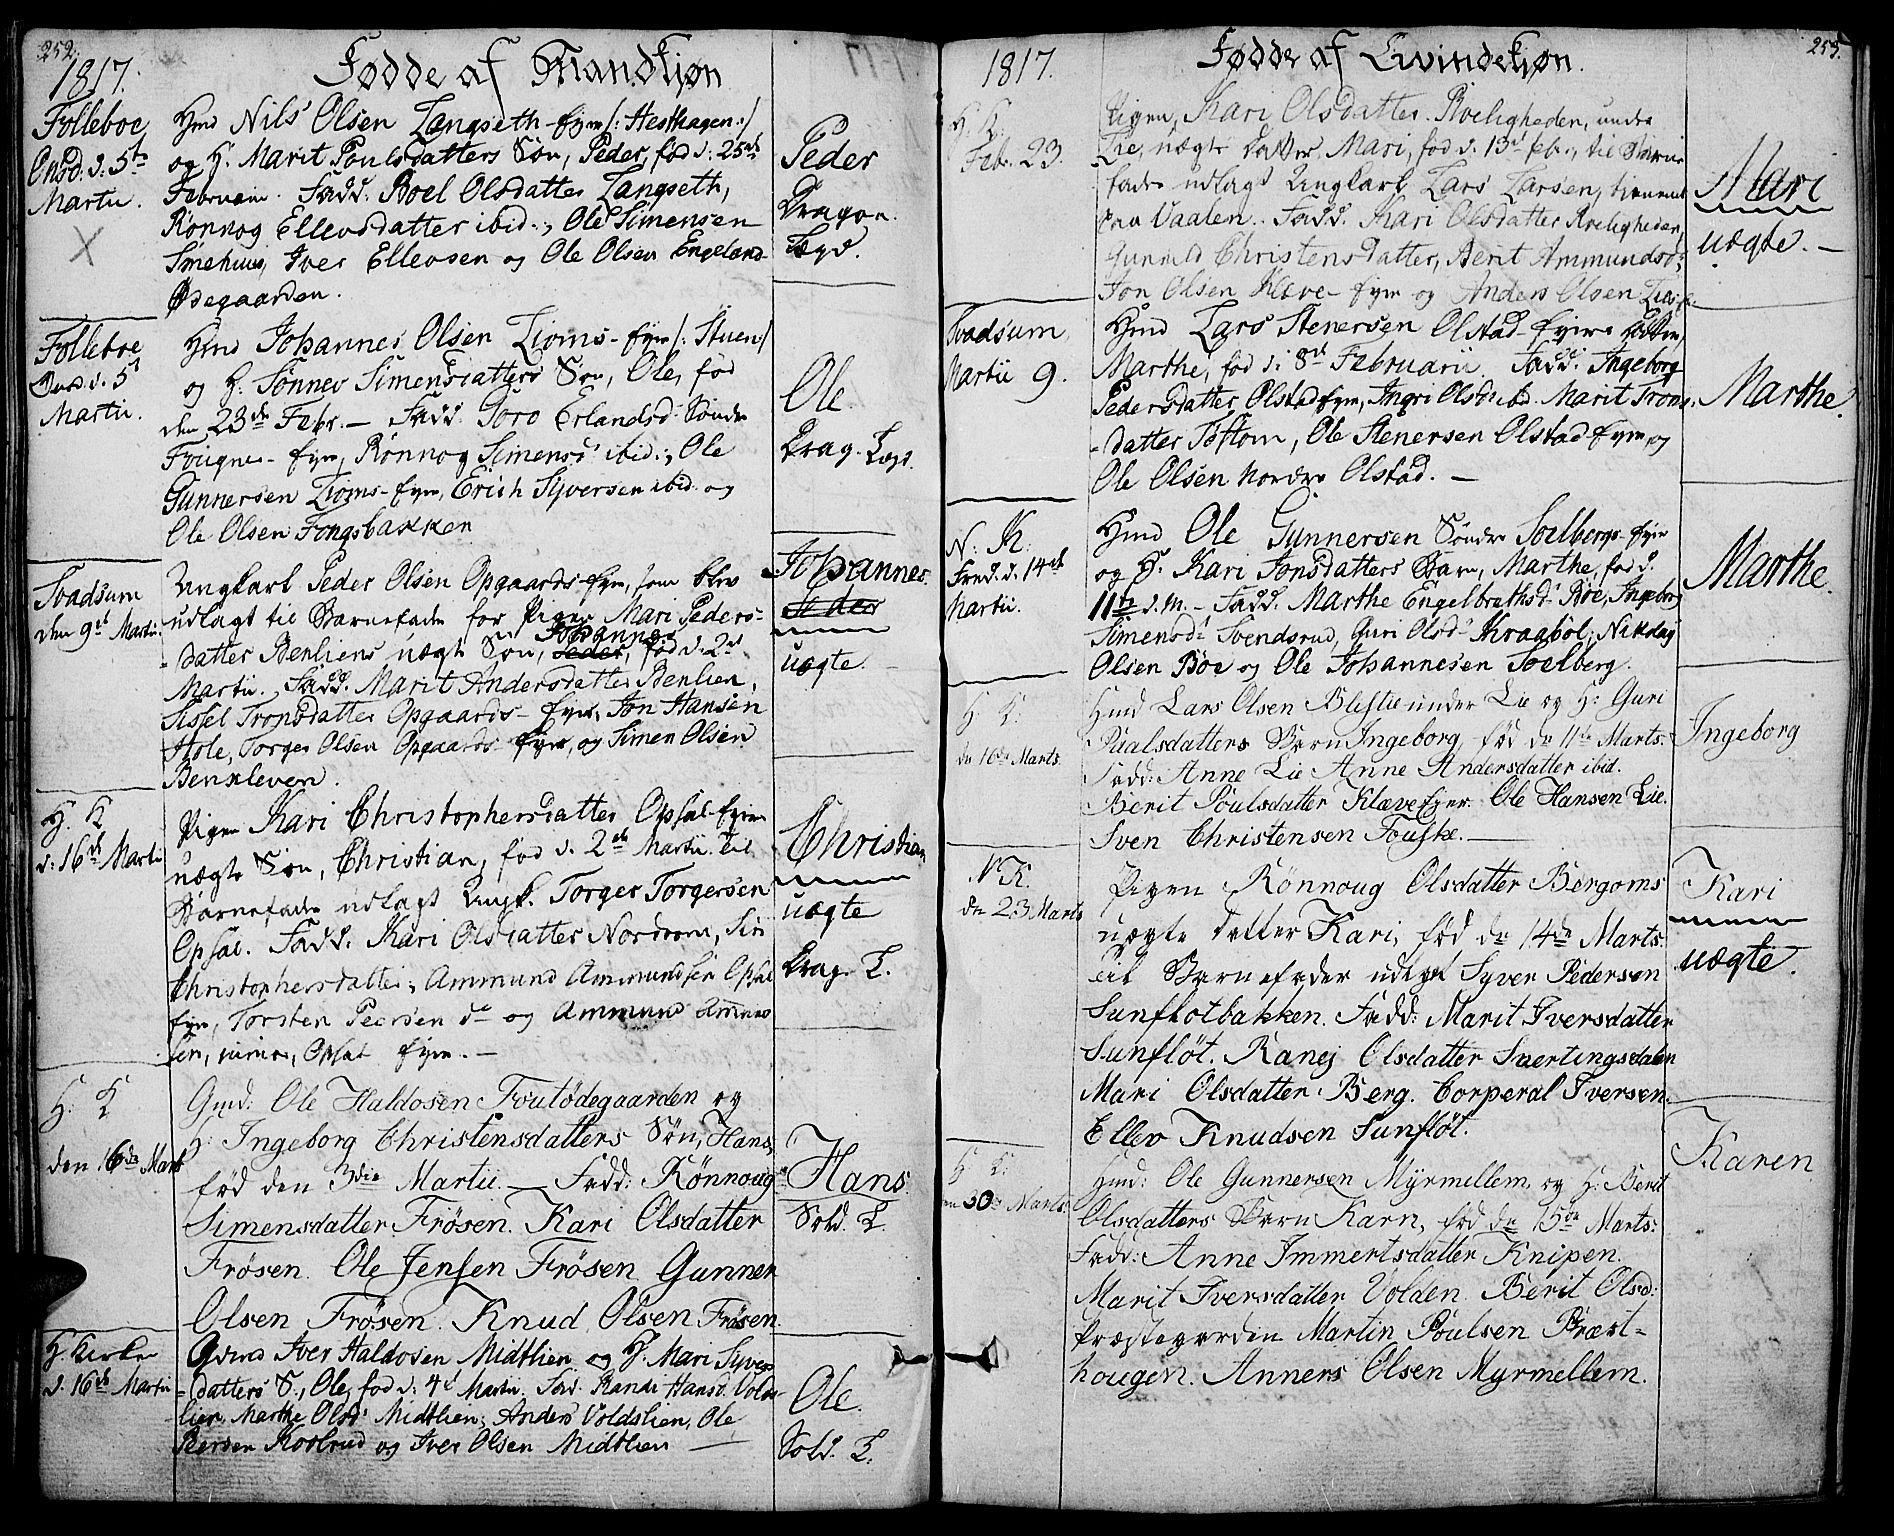 252.
1817.
Fødde af Mandkiøn
Folleboe
Onsd: d: 5te
Martii.
Hmd Nils Olsen Langseth-eyer /: Hesthagen :/
og H. Marit Poulsdatters Søn, Peder, fød d: 25de
Februarii. Fadd. Boel Olsdatter Langseth,
Rønnog Ellevsdatter ibid:, Ole Simensen
Smehuus, Iver Ellevsen og Ole Olsen Engeland-
Ødegaarden.
Peder
Dragon
Lægd.
Folleboe
Onsd. d. 5t
Martii.
Hmd Johannes Olsen Lioms-eyer /: Stuen :/
og H: Sønnev Simensdatters Søn, Ole, fød
den 23de Febr. - Fadd. Goro Erlandsd: Søndre
Fougner-eyer, Rønnog Simensd: ibid:, Ole
Gunnersen Lioms-eyer, Erich Syversen ibid. og
Ole Olsen Fongsbakken
Ole.
Drag. Lægd.
Svadsum
den 9de Martii.
Ungkarl Peder Olsen Opgaards-eyer, som blev
udlagt til Barnefader for Pigen Mari Peders-
datter Benliens uægte Søn, Johannes Peder, fød d. 2d
Martii. Fadd. Marit Andersdatter Benlien,
Sissel Tronsdatter Opgaards-eyer, Jon Hansen
Hole, Torger Olsen Opgaards-eyer, og Simen Olsen
Benkleven.
Johannes
Peder
uægte.
H. K
d: 16de Martii
Pigen Kari Christophersdatter Opsal-eyer
uægte Søn, Christian, fød d. 2de Martii. til
Barnefader udlagt Ungk. Torger Torgersen
Opsal. Fadd. Kari Olsdatter Nordrom, Siri
Christophersdatter, Ammund Ammundsen Opsal
eyer, Torsten Peersen do og Ammund Ammund
sen, Opsal eyer. -
Christian
uægte
Drag. L.
H: K
den 16de Marti
Gmd: Ole Haldosen Foutødegaarden og
H: Ingeborg Christensdatters Søn, Hans,
fød den 3die Martii - Fadd: Rønnoug
Simensdatter Frøsen. Kari Olsdatter
Frøsen. Ole Jensen Frøsen Gunner
Olsen Frøsen. Knud Olsen Frøsen.
Hans.
Sold. L.
H. Kirke
d. 16de Martii
Gmd Iver Haldosen Midtlien og H. Mari Syvers
datters S., Ole, fød d: 4d Martii. Fad. Randi Hansd. Volds-
lien, Marthe Olsd: Midtlien, Anders Voldslien, Ole
Peersen Kostrud og Iver Olsen Midtlien -
Ole.
Sold. L.
1817.
Fødde af Qvindekiøn.
253.
H. K.
Febr. 23.
Pigen, Kari Olsdatter Roeligheden, under
Lie, uægte Datter, Mari, fød d. 13d febr., til Barne
fader udlagt Ungkarl Lars Larsen, tienende
paa Vaalen. Fadd. Kari Olsdatter Roeligheden,
Gunnild Christensdatter, Berit Ammundsd:,
Jon Olsen Kleve-eyer og Anders Olsen Lies-e.
Mari
uægte. -
Svadsum,
Martii 9.
Hmd Lars Stenersen Olstad-eyers Datter,
Marthe, fød d: 8d Februarii. Fadd. Ingeborg
Pedersdatter Olstadeyer, Ingri Olsd: ibd. Marit Trons-
datter Toftom, Ole Stenersen Olstad-eyer, og
Ole Olsen Nordre Olstad. -
Marthe.
N: K:
Fred. d. 14de
Martii.
Hmd Ole Gunnersen Søndre Solbergs-eyer
og H. Kari Jonsdatters Barn, Marthe, fød d.
11te d. M. - Fadd. Marthe Engelbrethsd: Bøe, Ingeborg
Simensd: Svendsrud, Guri Olsd: Kraabøl, Nikolay
Olsen Bøe og Ole Johannesen Solberg.
Marthe.
H: K:
dn 16de Marts.
Hmd Lars Olsen Bleslie under Lie og H: Guri
Paalsdatters Barn Ingeborg, fød dn 11te Marts.
Fadd: Anne Lie Anne Andersdatter ibid.
Berit Poulsdatter Klæveeyer Ole Hansen Lie.
Sven Christensen Fouske. -
Ingeborg
N K.
dn 23 Marts
Pigen Rønnoug Olsdatter Bergoms
uægte Datter Kari, fød dn 14de Marts.
til Barnefader udlagt Syver Pedersen
Sunfløtbakken. Fadd: Marit Iversdatter
Sunfløt. Ranej Olsdatter Svertingsdalen
Mari Olsdatter Berg. Corperal Iversen.
Ellev Knudsen Sunfløt.
Kari
uægte.
H. K:
den 30te Marts.
Hmd: Ole Gunnersen Myrmellem og H: Berit
Olsdatters Barn Karn, fød dn 15de Marts:
Fadd: Anne Immertsdatter Knipen.
Marit Iversdatter Volden. Berit Olsd:
Præstegarden Martin Poulsen Præst-
hougen. Anners Olsen Myrmellem.
Karen